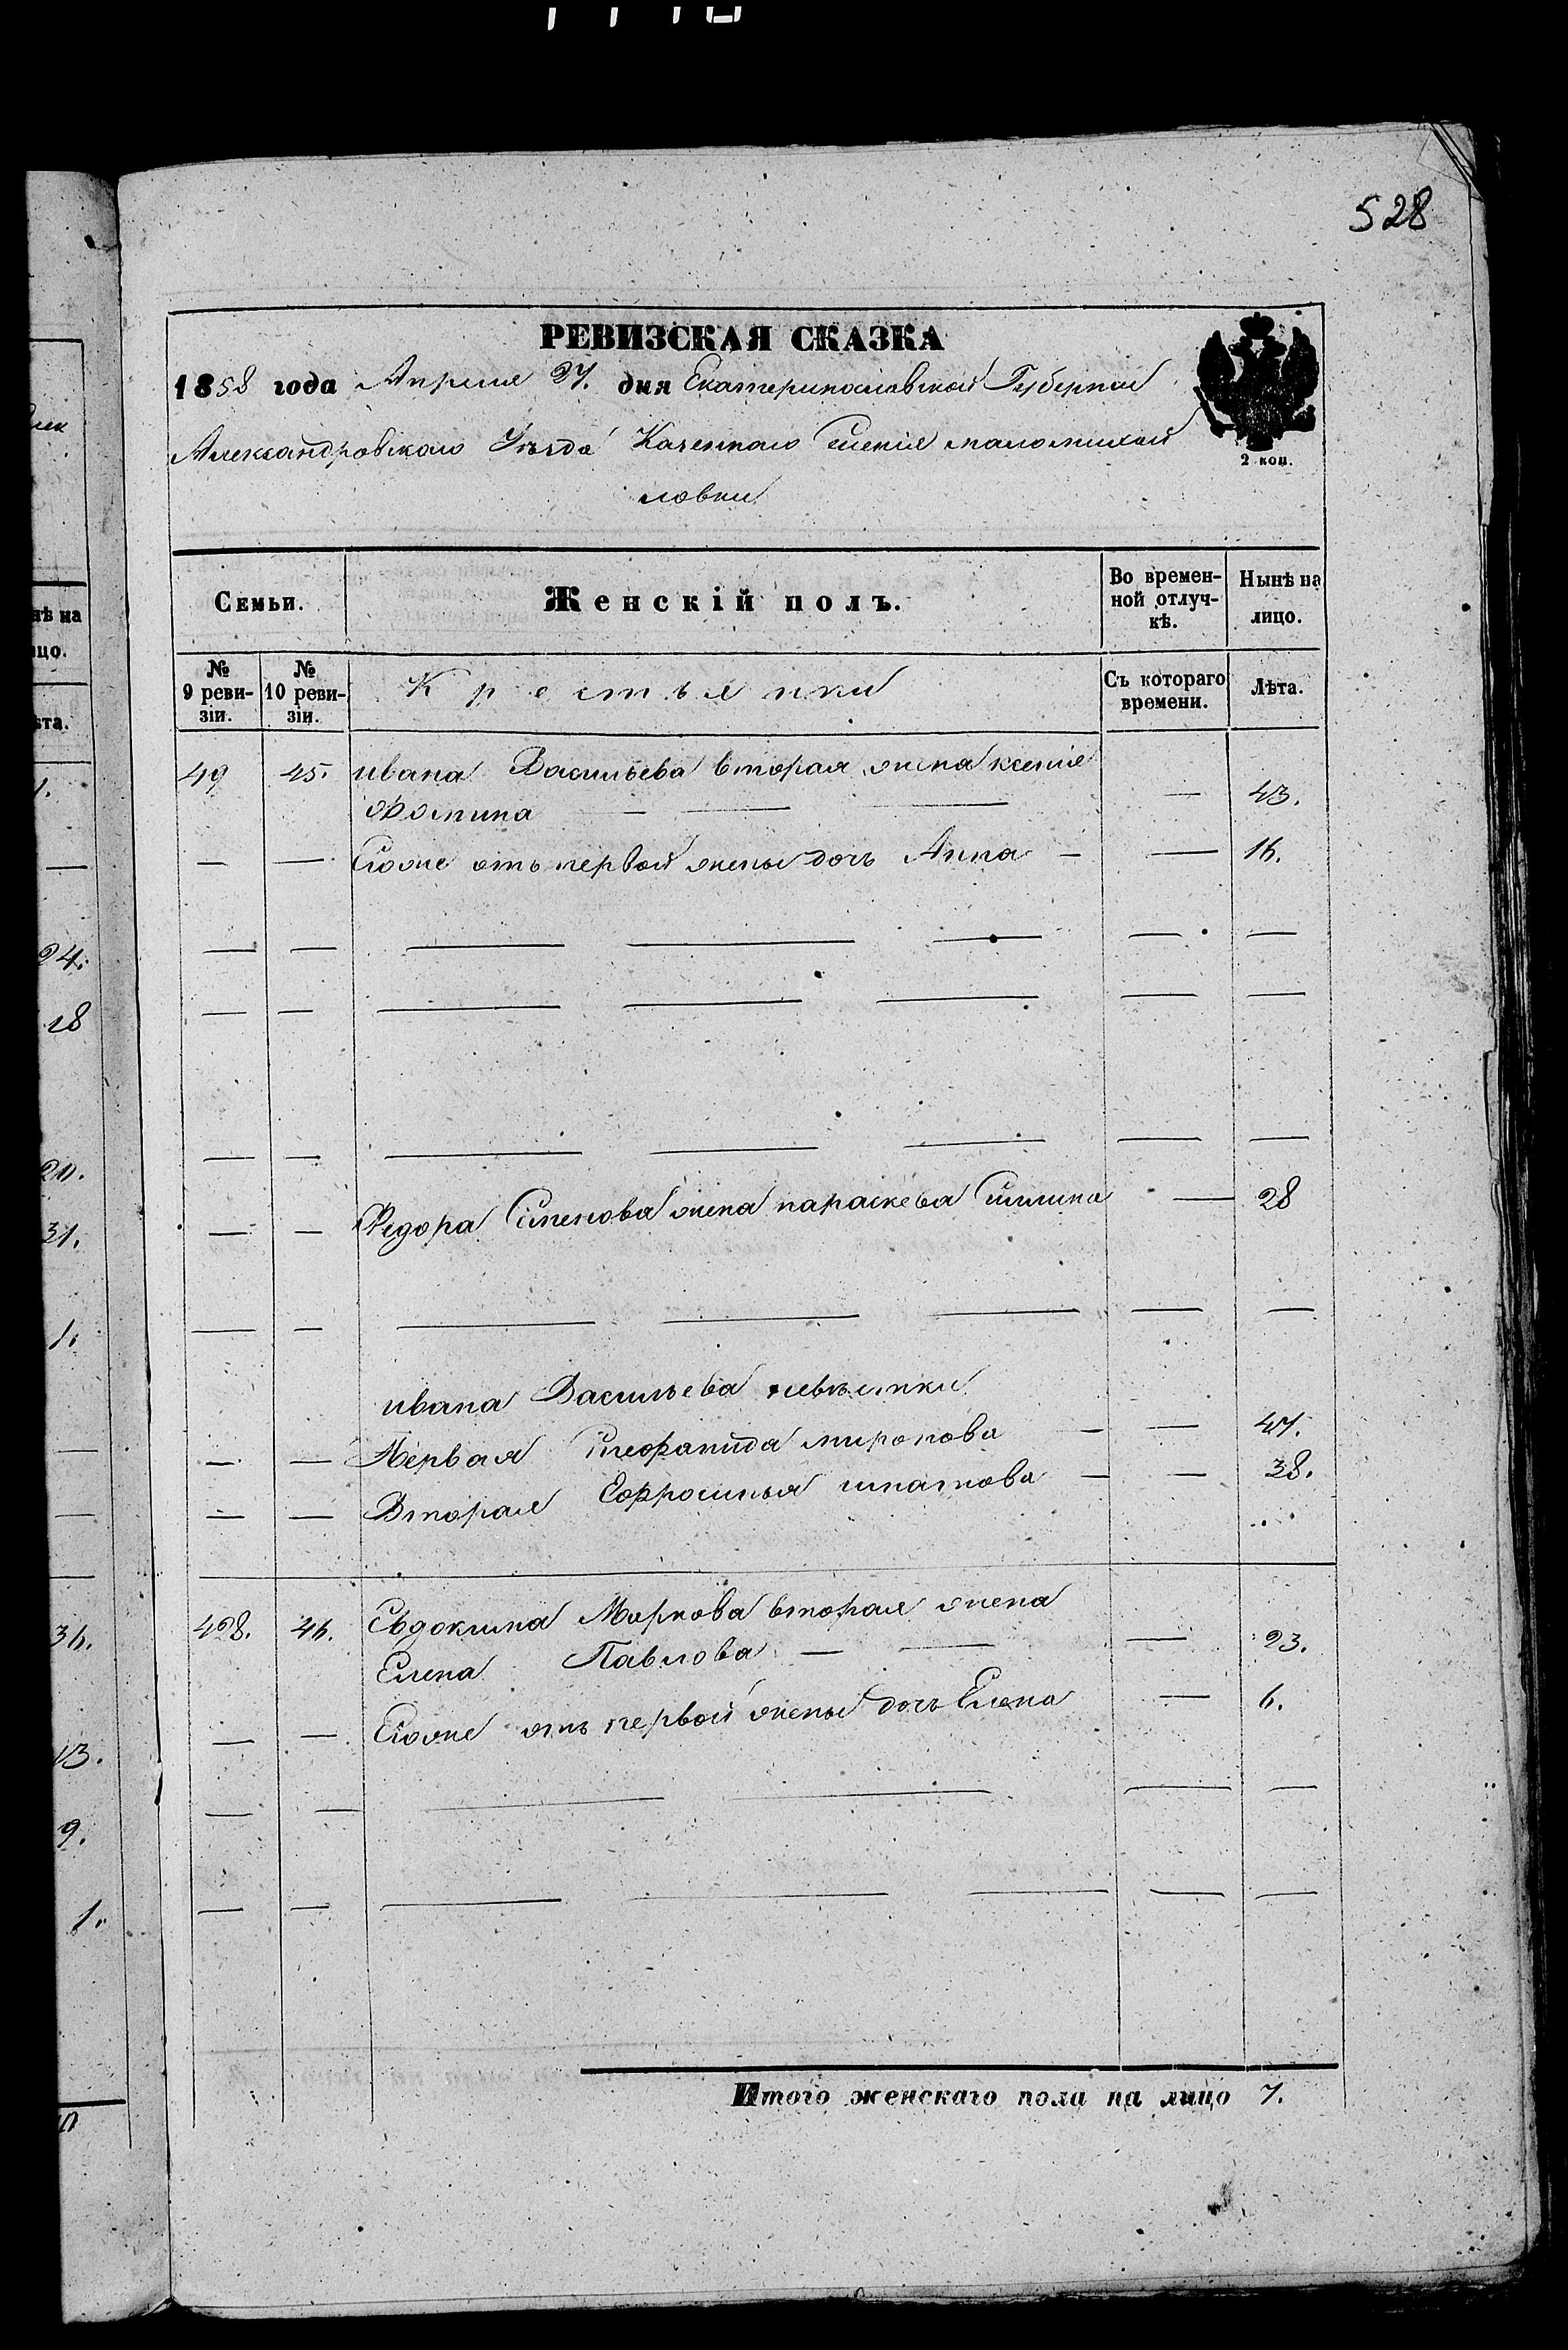 528
РЕВИЗСКАЯ СКАЗКА
1858 года Апреля 27. дня Екатеринославской Губернии
Александровскаго Уезда Казеннаго маломихай
ловки
2 коп.
Семьи. Женскій полъ. Во времен-ной отлуч-кѣ. Нынѣ на лицо.
№ 9 реви-зіи. № 10 реви-зіи. Крестьянки Съ котораго времени. Лѣта.
49 45. ивана Васильева вторая жена ксения
Фомина — — — — 43.
— — Егоже отъ первой жены дочь Анна — — 16.
— — — — — — —
— — — — — — —
— — — — — — —
— — Федора жена параскева — 28
— — — — — — —
ивана Васильева невѣстки
— — Первая миронова — — 47.
— — Вторая Ефросинья игнатова — — 38.
428. 46. Евдокима Маркова вторая жена
Елена Павлова — — — 23.
— — Егоже отъ первой жены дочь Елена — 6.
— — — — — —
— — — — — — —
Итого женскаго пола на лицо 7.
нѣ на
ицо.
ѣта.
1.
—
24.
18
20.
31.
1.
—
—
36.
13.
9.
1.